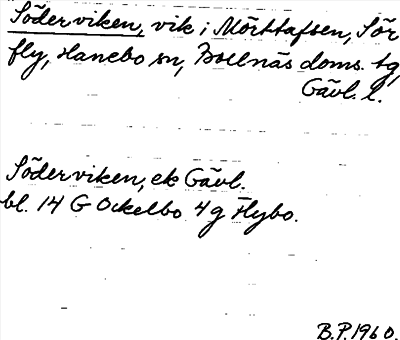 Söderviken, vik i Mörttafsen, Sör
fly, Hanebo sn, Bollnäs doms. tg,
Gävl. l.
Söderviken, ek Gävl.
bl. 14 G Ockelbo 4g Flybo.
B.P. 1960.